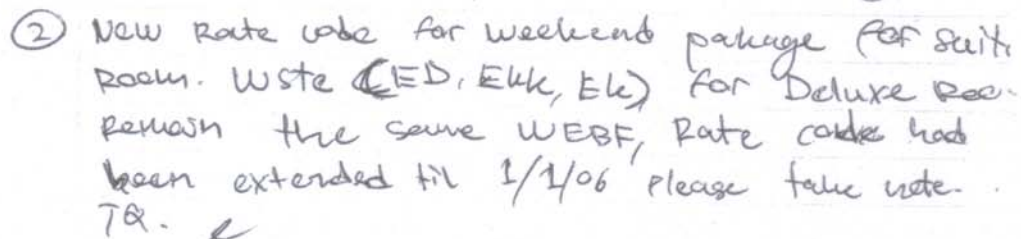 ② New Rate code for weekend package for Suit
Room. Wste (ED, EKK, EK) for Deluxe Roo.
Remain the same WEBF, Rate code had
been extended til 1/1/06 please take note.
TQ.